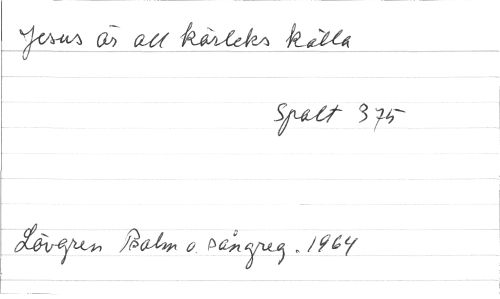 Jesus är all kärleks källa
Spalt 375
Lövgren Psalm o. sångreg. 1964